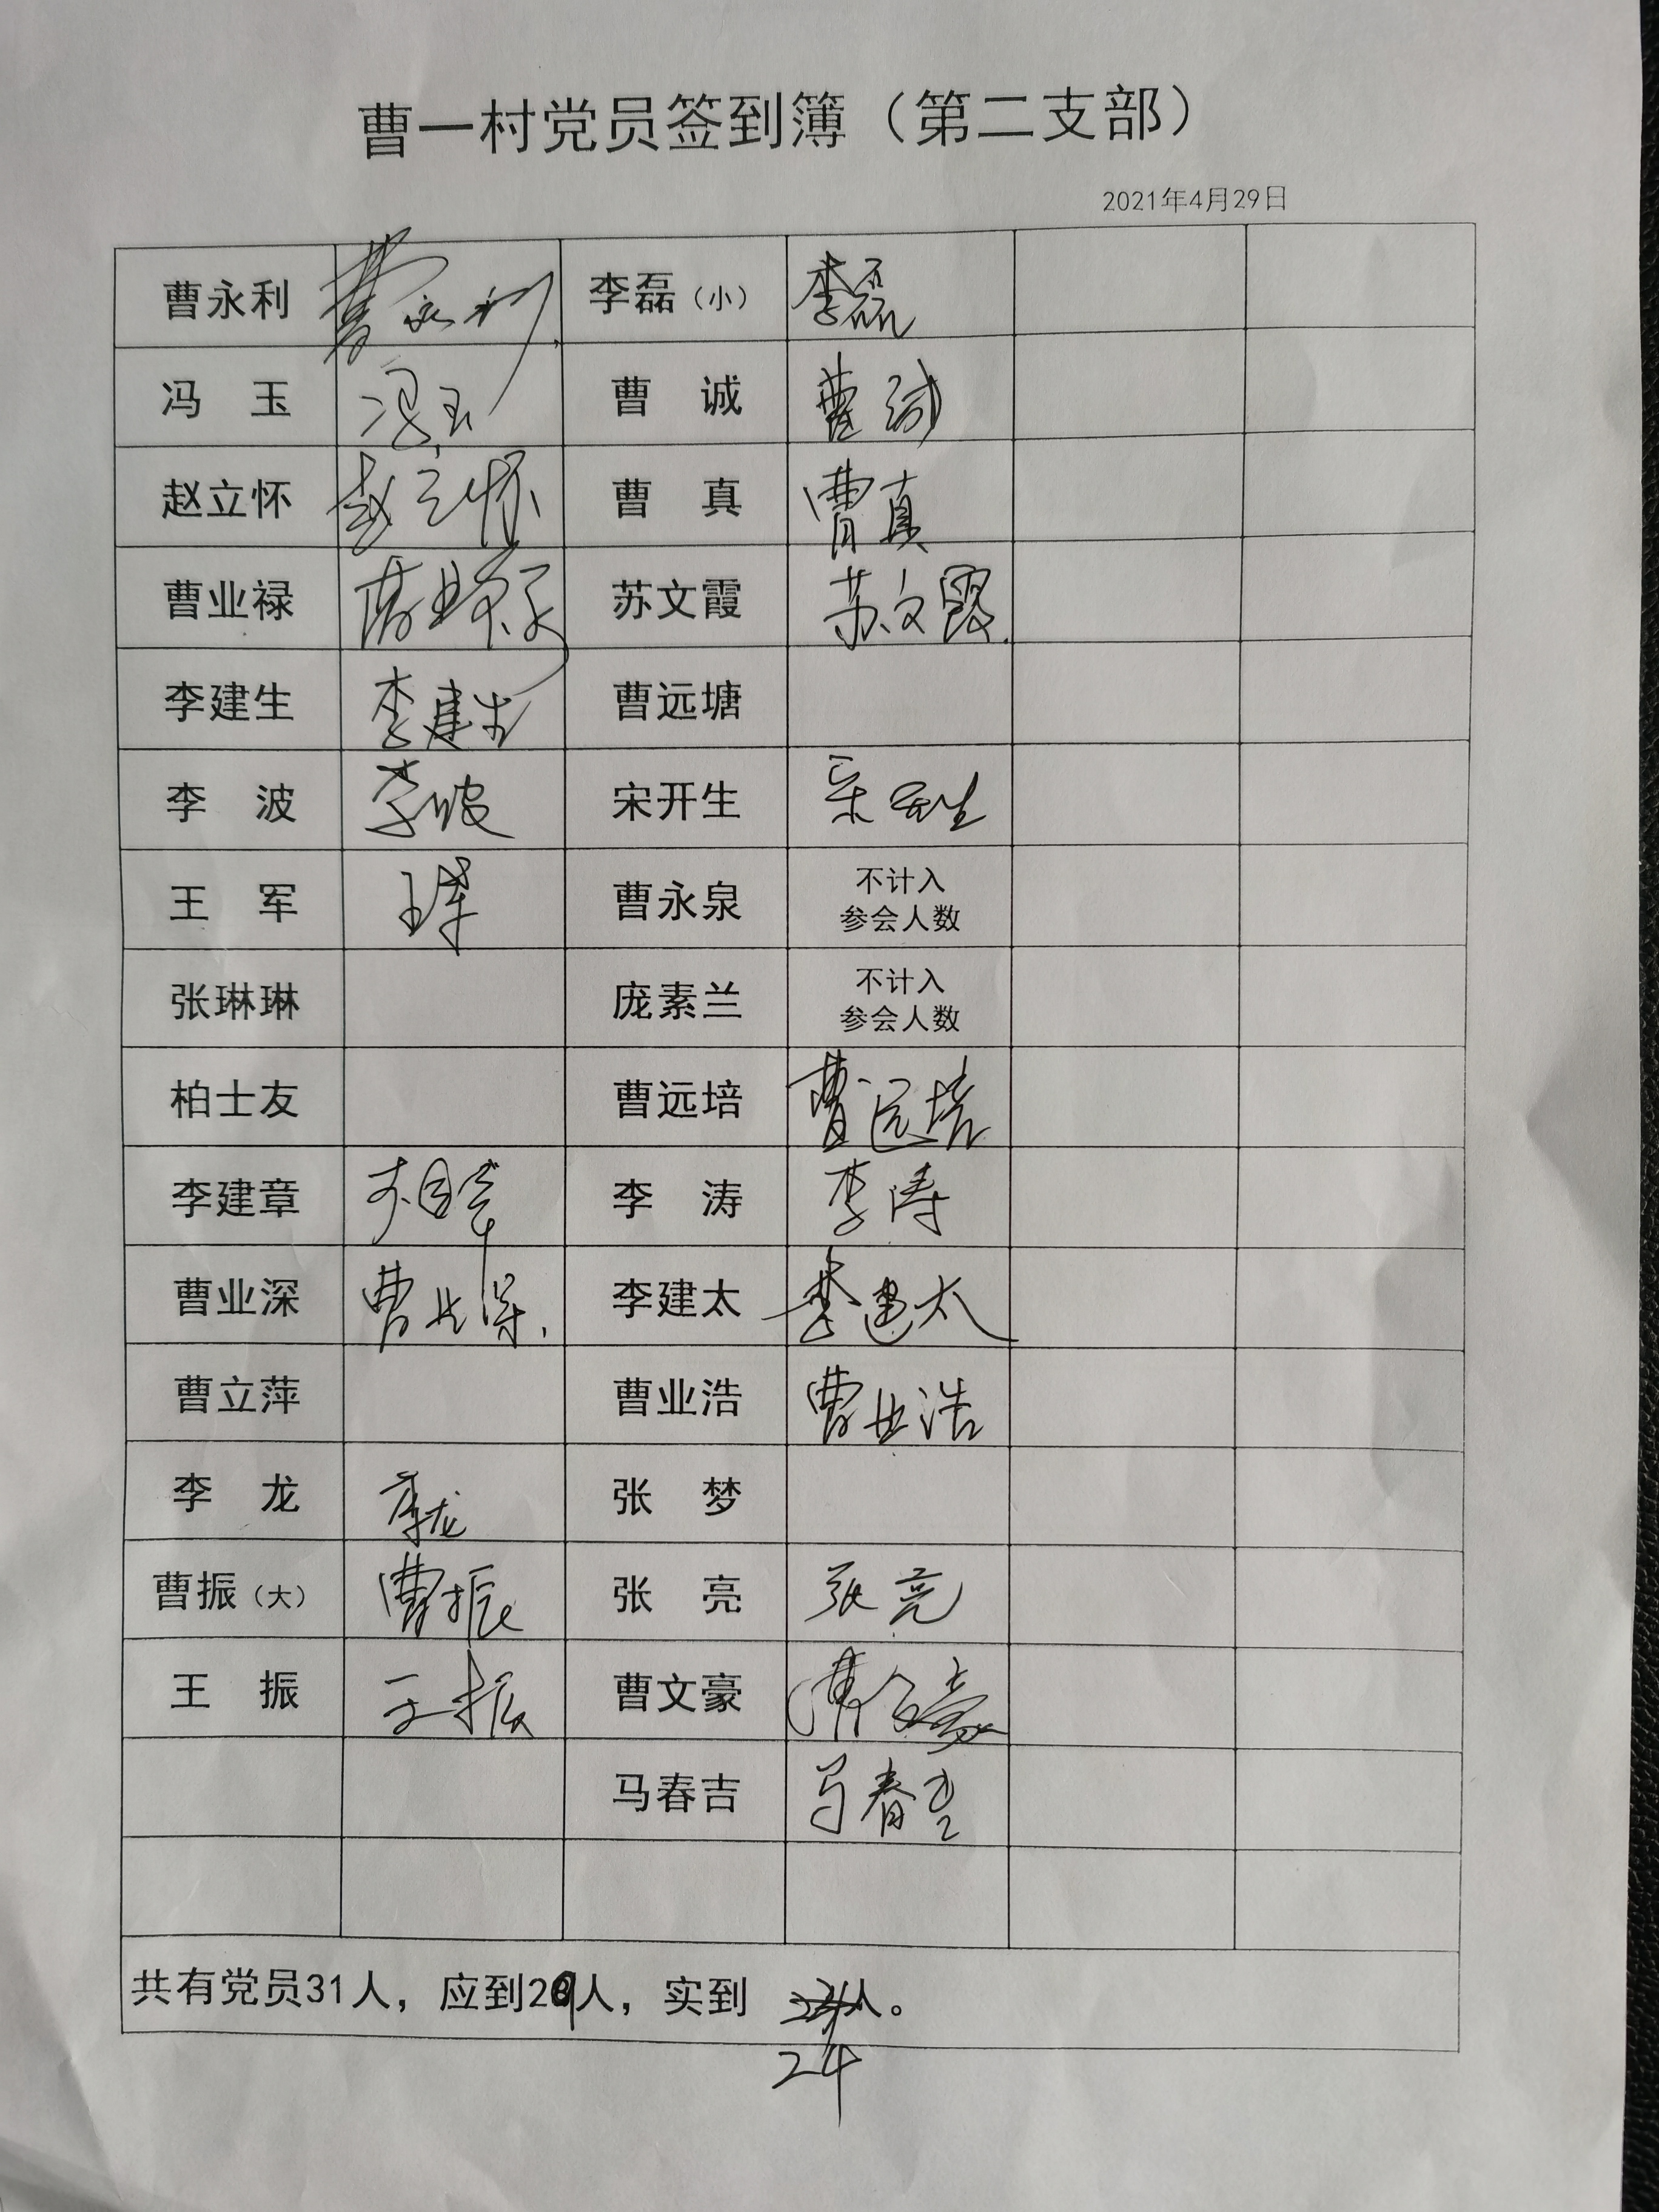 曹一村党员签到簿（第二支部）
2021年4月29日
曹永利 曹永利 李磊（小） 李磊
冯 玉 冯玉 曹 诚 曹诚
赵立怀 赵立怀 曹 真 曹真
曹业禄 曹业禄 苏文霞 苏文霞
李建生 李建生 曹远塘
李 波 李波 宋开生 宋开生
王 军 王军 曹永泉 不计入
参会人数
张琳琳 庞素兰 不计入
参会人数
柏士友 曹远培 曹远培
李建章 李建章 李 涛 李涛
曹业深 曹业深 李建太 李建太
曹立萍 曹业浩 曹业浩
李 龙 李龙 张 梦
曹振（大） 曹振 张 亮 张亮
王 振 王振 曹文豪 曹文豪
马春吉 马春吉
共有党员31人，应到29人，实到 人。
24